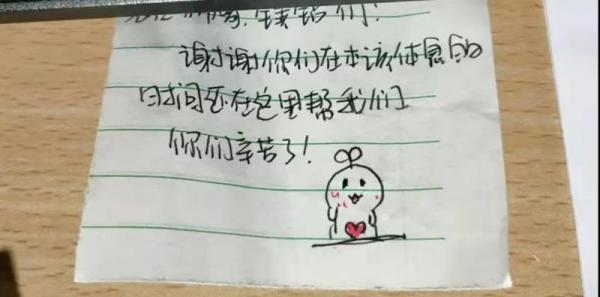 们!
谢谢你们在本该休息的
时间还在这里帮我们
你们辛苦了!